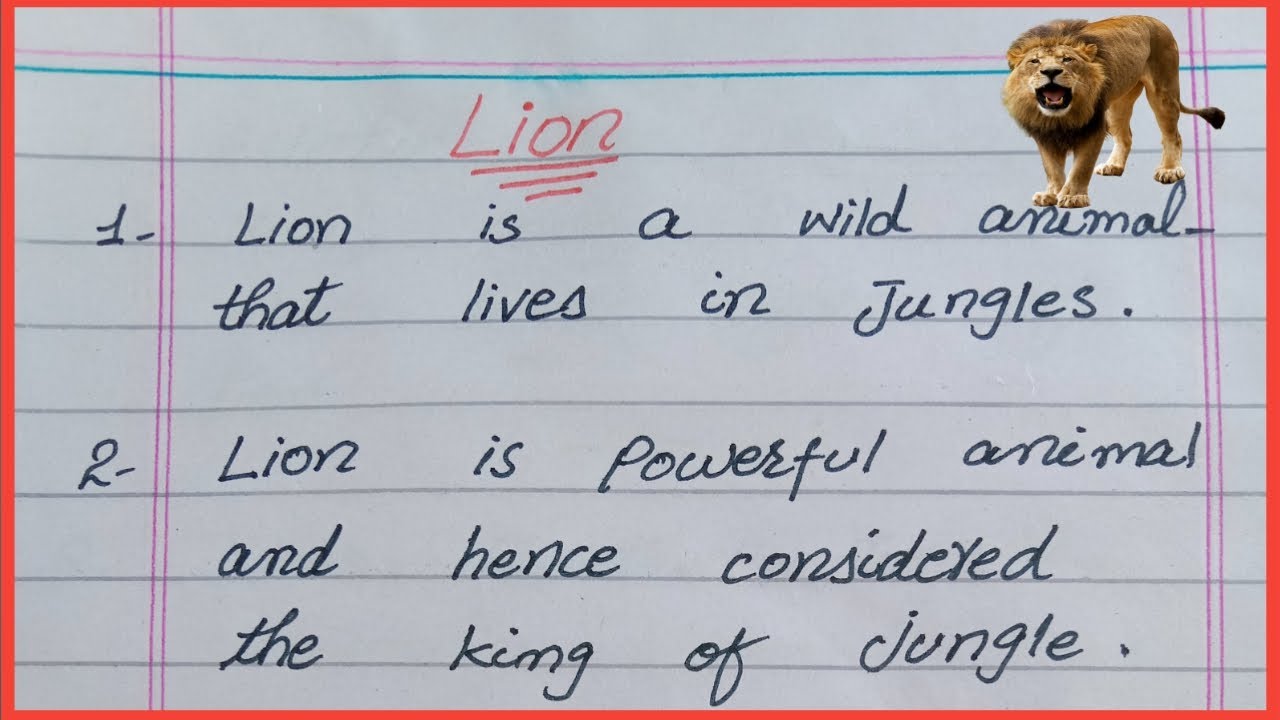 Lion
1- Lion is a wild animal-
that lives in Jungles.
2- Lion is Powerful animal
and hence considered
the king of jungle.